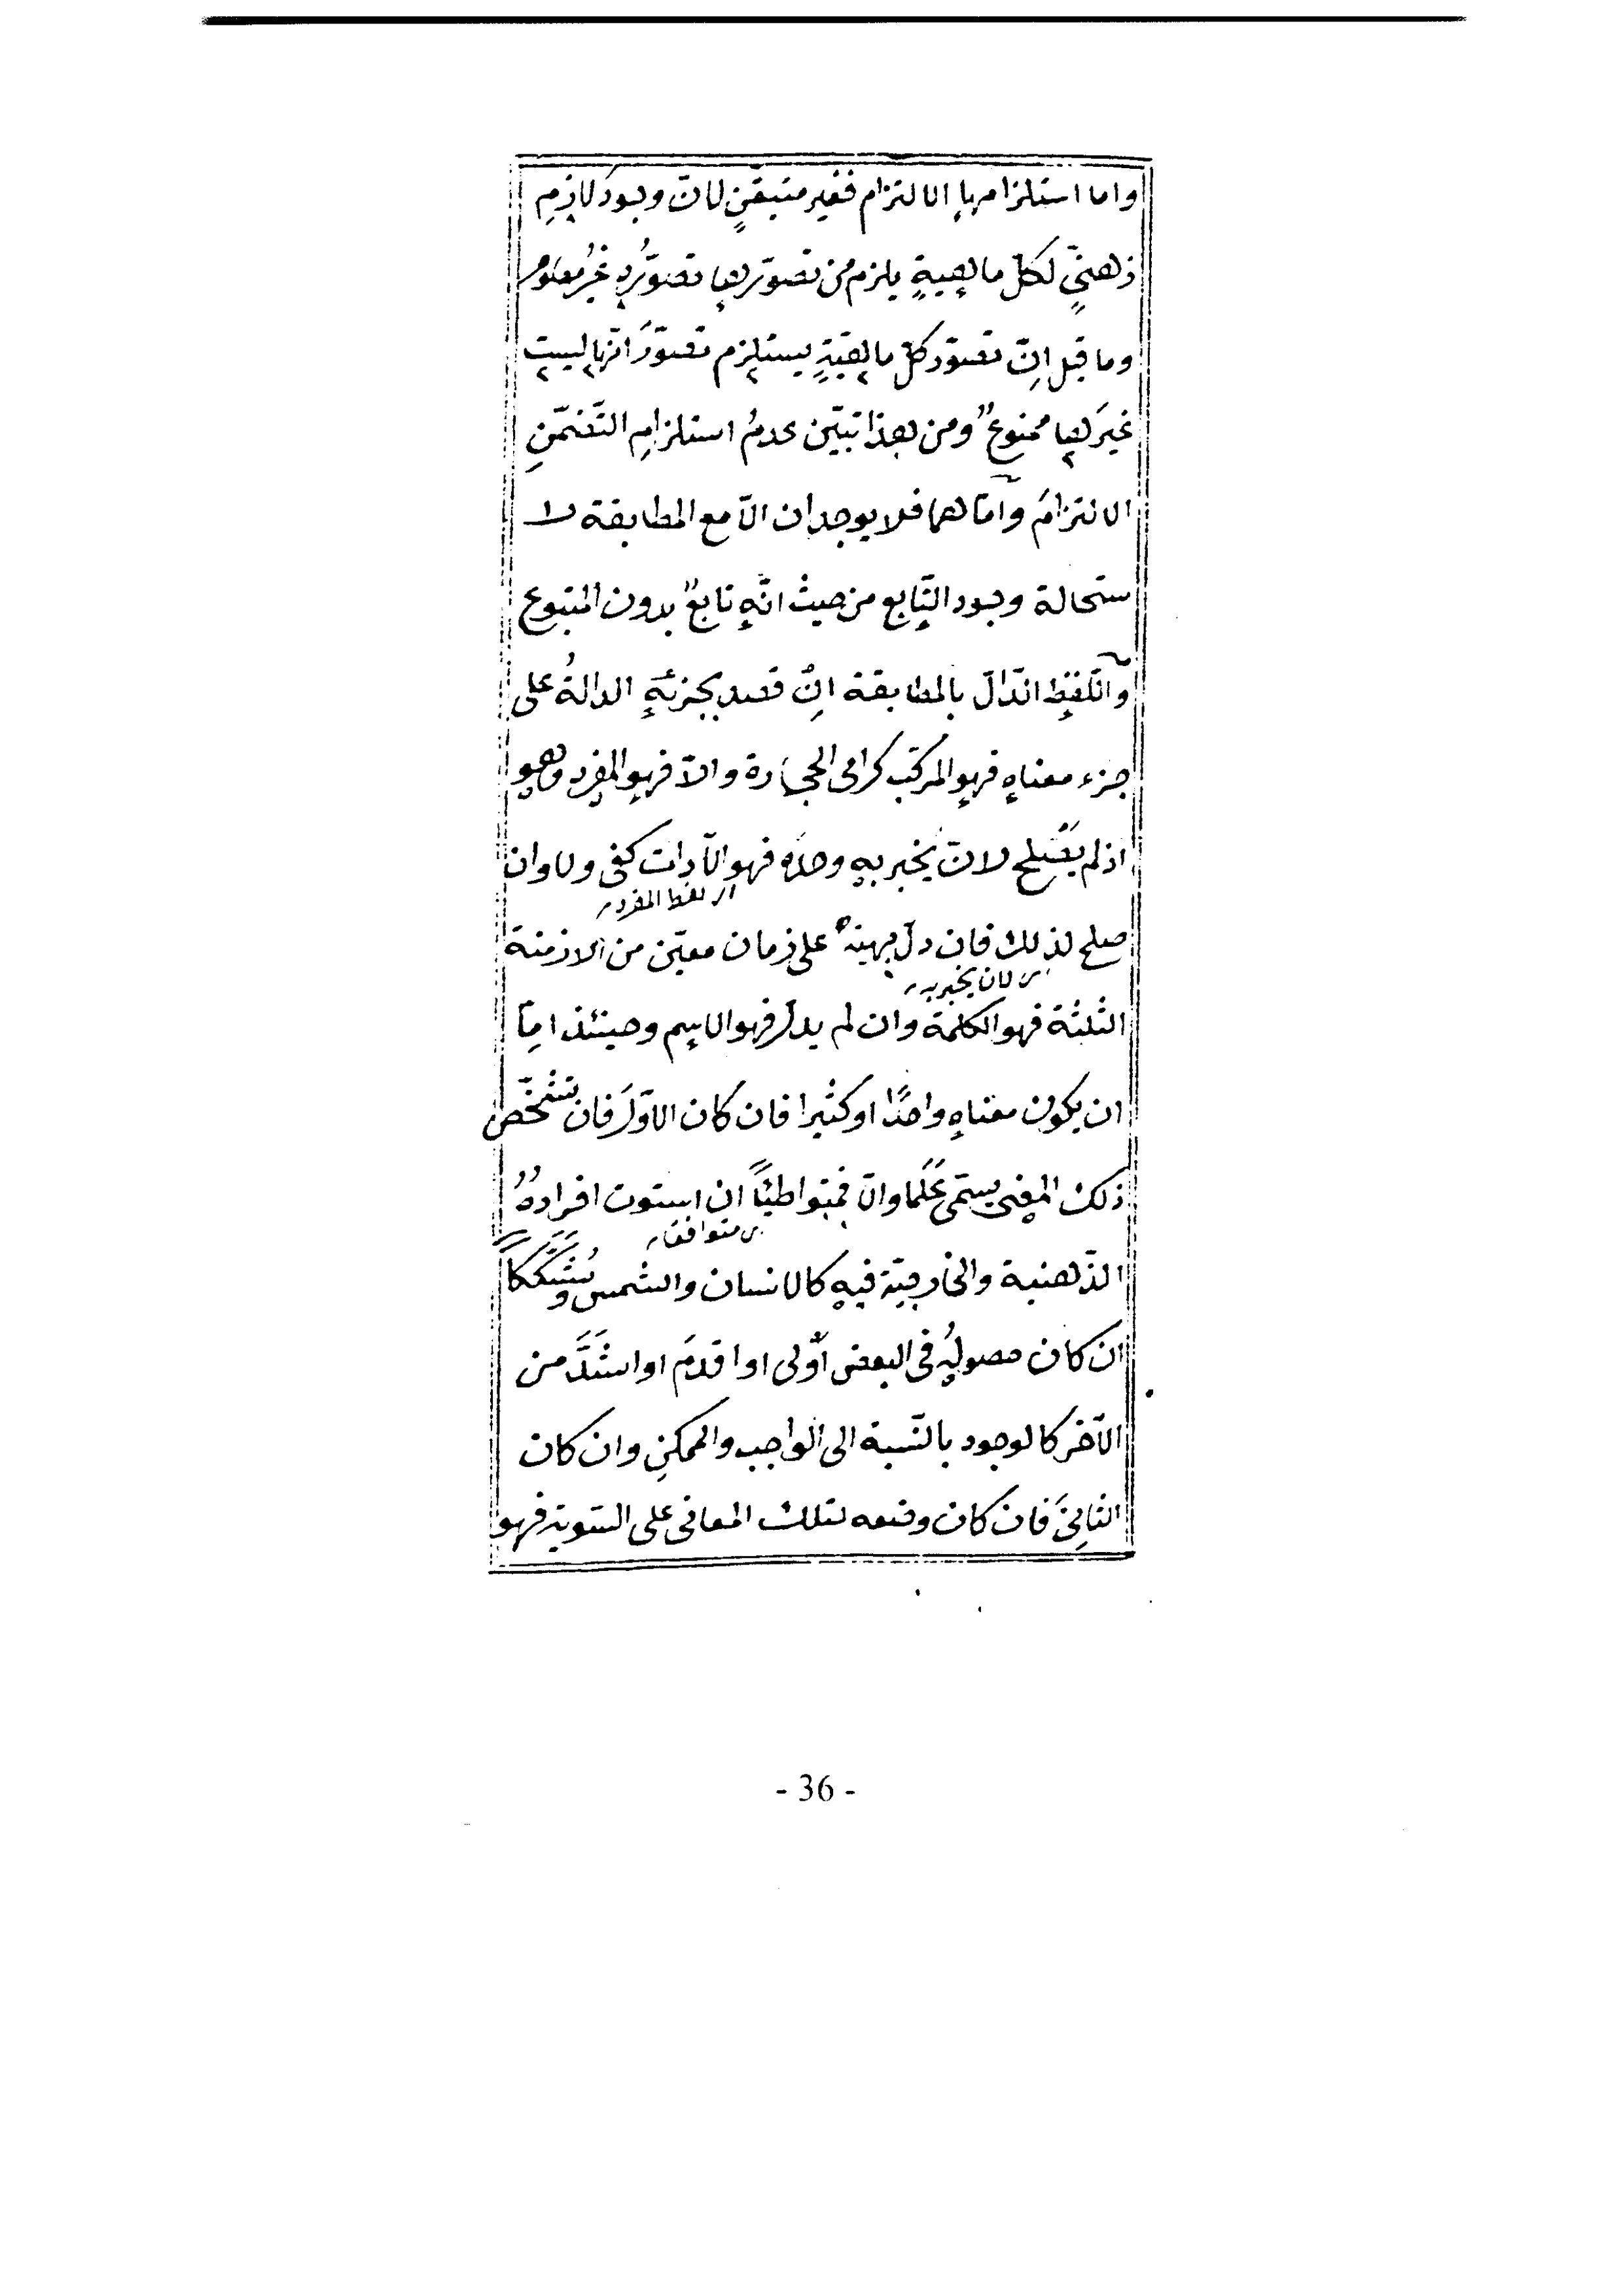 واما استلزامها الالتزام فغير متيقنٍ لانّ وجودَ لازمٍ
ذهنيٍّ لكلّ ماهيةٍ يلزم من تصوّرها تصوُّرُه غيرُ معلوم
وما قيل اِنّ تصوّر كلّ ماهيّةٍ يستلزم تصوّرَ انّها ليست
غيرَها ممنوعٌ ومن هذا تبيّن عدمُ استلزامِ التّضمّنِ
الالتزامَ وامّا هما فلا يوجدان الّا مع المطابقة لا
ستحالة وجود التّابع من حيثُ انّه تابعٌ بدون المتبوع
واللّفظ الدّالّ بالمطابقة اِنْ قصد بجزئه الدالةُ على
جزء معناه فهو المركّب كرامى الحجارة والّا فهو المفرد وهو
اذلم يَصْلح لانّ يُخبر به وحدَه فهو الأدات كفى ولا وان
ار لفظ المفرد
صلح لذلك فان دلّ بهيئة على زمان معيّن من الازمنة
لان يخبر به
الثلثة فهو الكلمة وان لم يدل فهو الاسم وحينئذ امّا
ان يكون معناه واحدًا او كثيرا فان كان الاوّلَ فان تشخّص
ذلك المعنى يسمّى عَلَما والّا فمتواطئًا ان استوت افرادهُ
متوافقا
الذّهنية والخارجيّة فيه كالانسان والشمس ومُشَكّكًا
ان كان حصولُه في البعض اَوْلى او اقدمَ او اشَدَّ من
الآخر كالوجود بالنّسبة الى الواجب والممكنِ وان كان
الثانِىَ فان كان وضعه لتلك المعانى على السّوية فهو
- 36 -